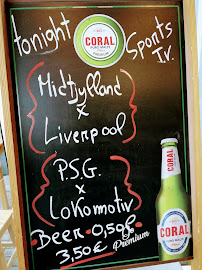 tonight
Sports
T.V.
CORAL
Midtjylland
x
Liverpool
P.S.G.
x
Lokomotiv
Beer 0,50l
3,50€
Premium
CORAL